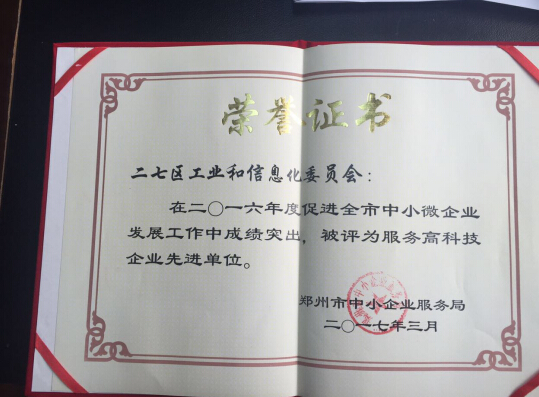 荣誉证书
二七区工业和信息化委员会：
在二〇一六年度促进全市中小微企业
发展工作中成绩突出，被评为服务高科技
企业先进单位。
郑州市中小企业服务局
二〇一七年三月